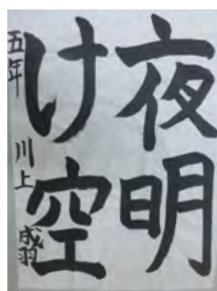 夜明
け空
五年 川上